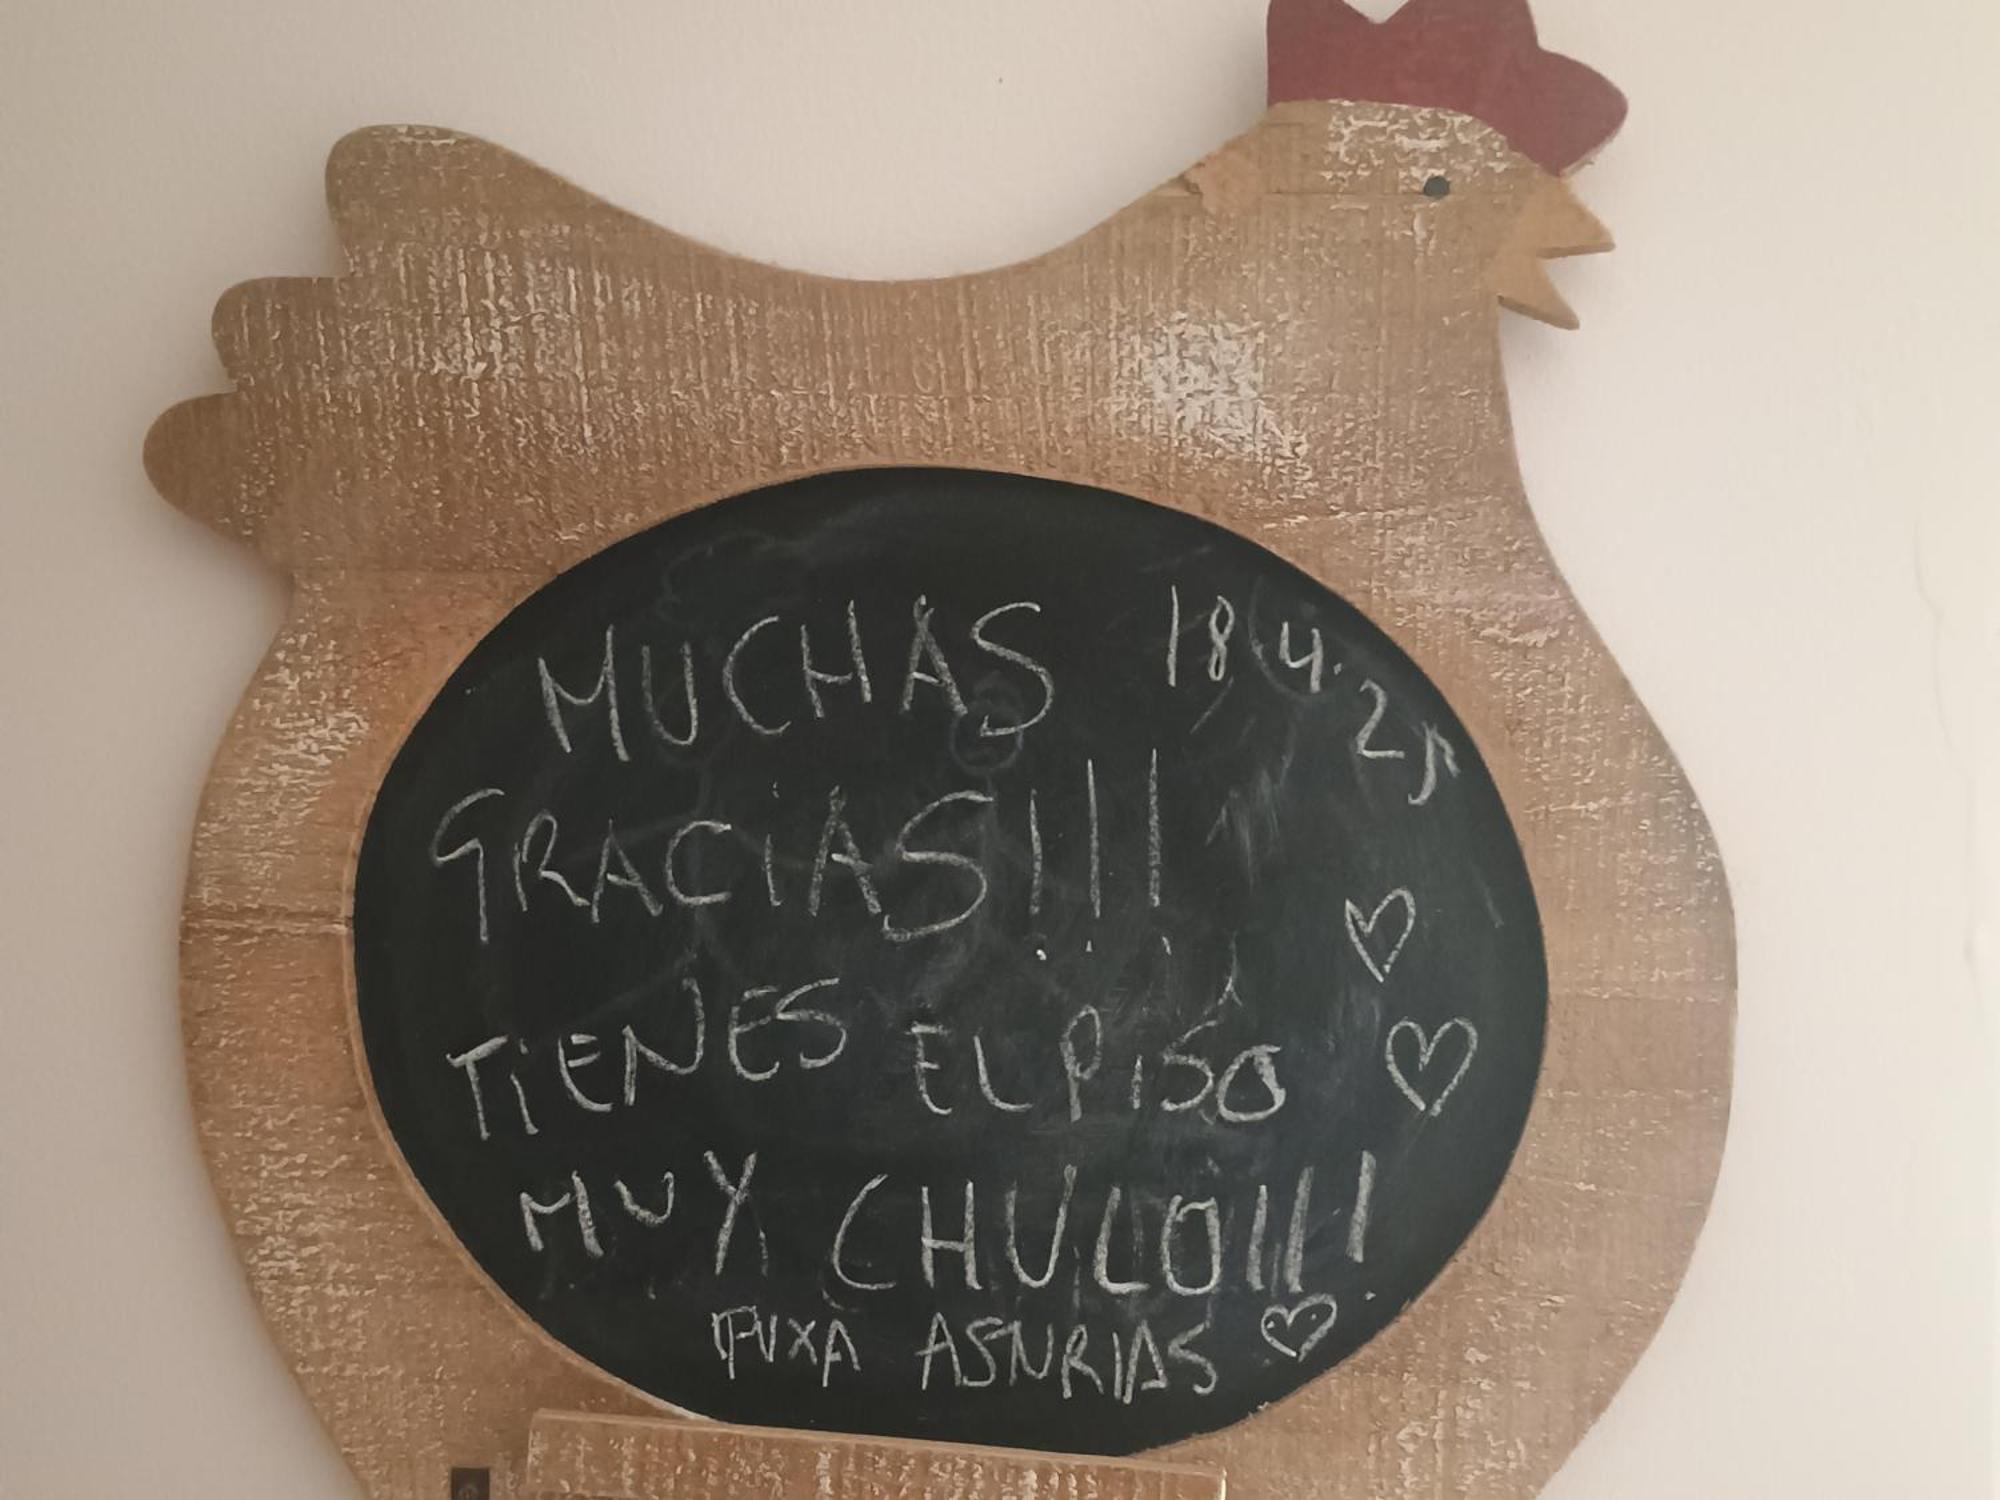 MUCHAS 18.4.25
GRACIAS!!!
TIENES EL PISO
MUY CHULO!!!
PUXA ASTURIAS